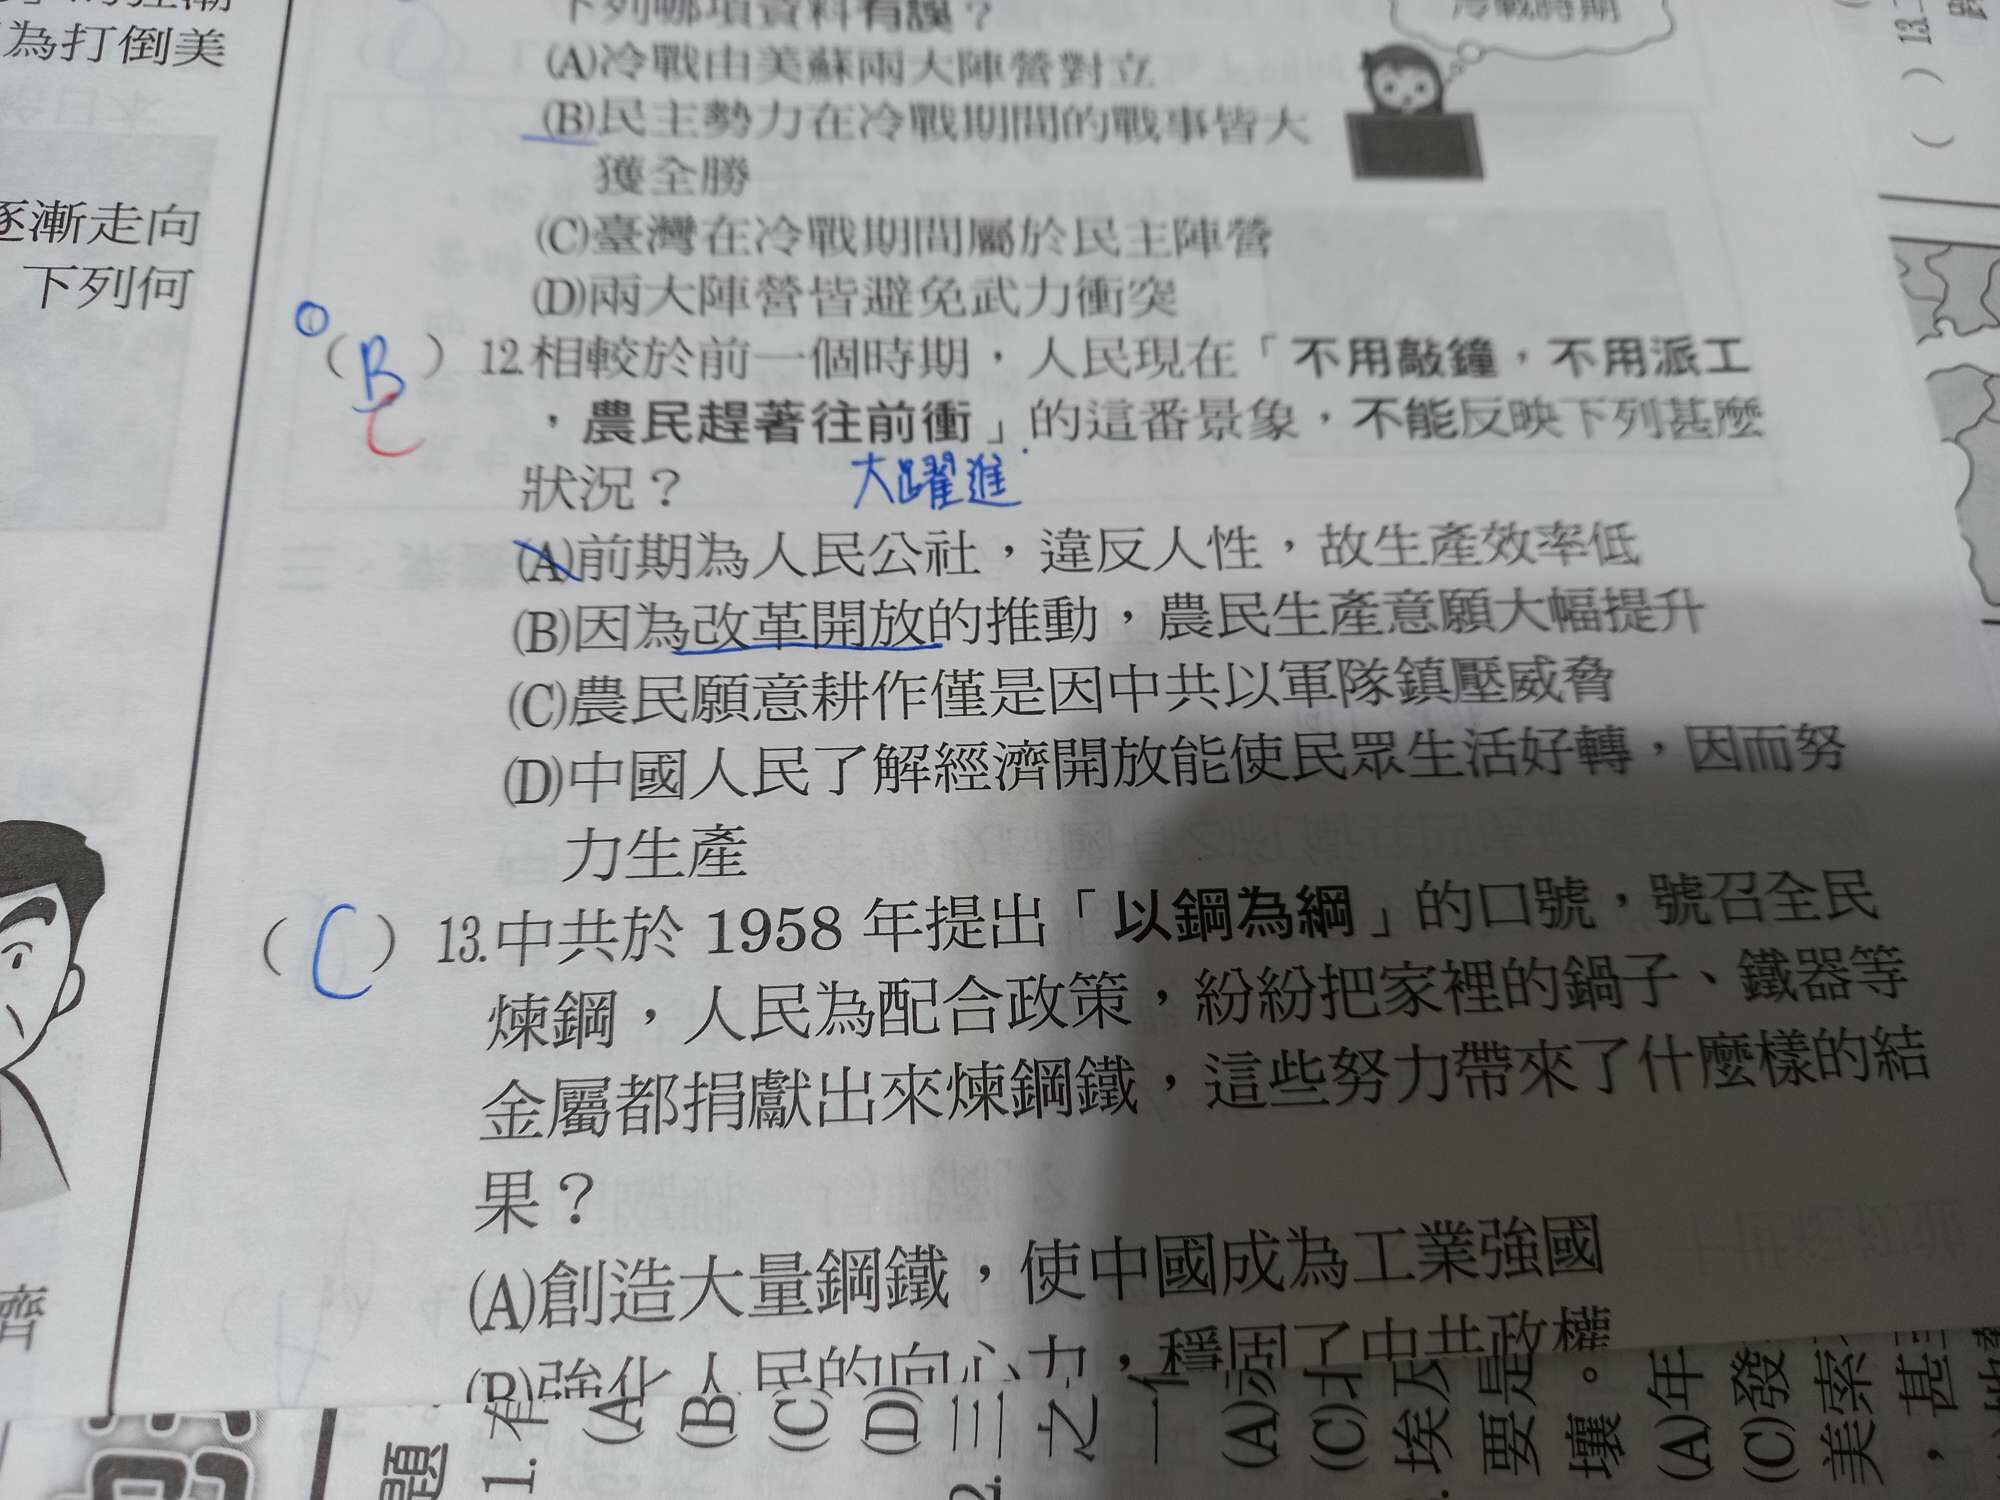 為打倒美
逐漸走向
下列何
齊
下列哪項資料有誤？
冷戰時期
(A)冷戰由美蘇兩大陣營對立
(B)民主勢力在冷戰期間的戰事皆大
獲全勝
(C)臺灣在冷戰期間屬於民主陣營
(D)兩大陣營皆避免武力衝突
(B) 12.相較於前一個時期，人民現在「不用敲鐘，不用派工
C
，農民趕著往前衝」的這番景象，不能反映下列甚麼
狀況？
大躍進
(A)前期為人民公社，違反人性，故生產效率低
(B)因為改革開放的推動，農民生產意願大幅提升
(C)農民願意耕作僅是因中共以軍隊鎮壓威脅
(D)中國人民了解經濟開放能使民眾生活好轉，因而努
力生產
(C) 13.中共於 1958 年提出「以鋼為綱」的口號，號召全民
煉鋼，人民為配合政策，紛紛把家裡的鍋子、鐵器等
金屬都捐獻出來煉鋼鐵，這些努力帶來了什麼樣的結
果？
(A)創造大量鋼鐵，使中國成為工業強國
(B)強化人民的向心力，穩固了中共政權
題
1. 有
(A)
(B)
(C)
(D)
2. 三
之
一
(A)
(C)
埃及
要是
壤。
(A)年
(C)發
美索
，甚
13.